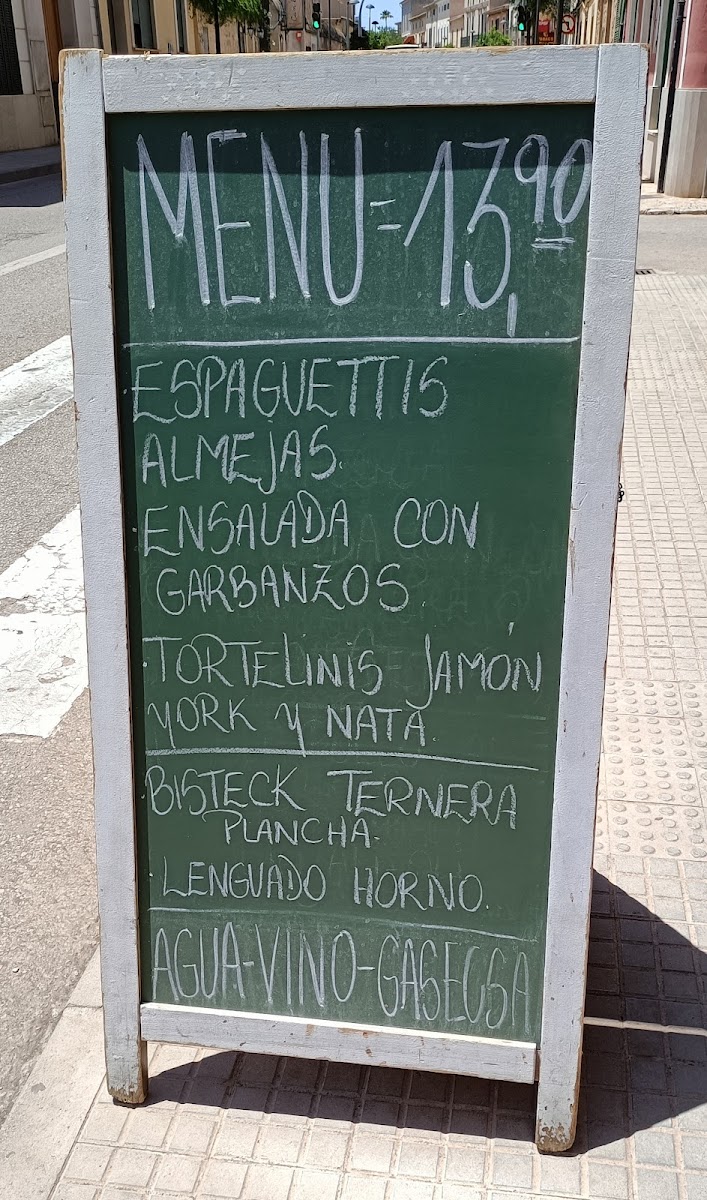 MENU=13,90
ESPAGUETTIS
ALMEJAS.
ENSALADA CON
GARBANZOS.
TORTELINIS JAMÓN
YORK Y NATA.
BISTECK TERNERA
PLANCHA.
LENGUADO HORNO.
AGUA-VINO-GASEOSA